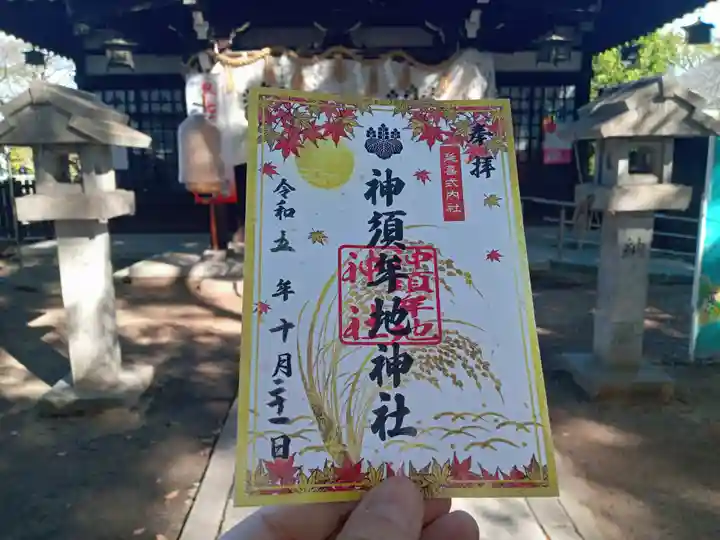 奉拝
延喜式内社
神須牟地神社
神須牟地
神社
令和五年十月二十一日